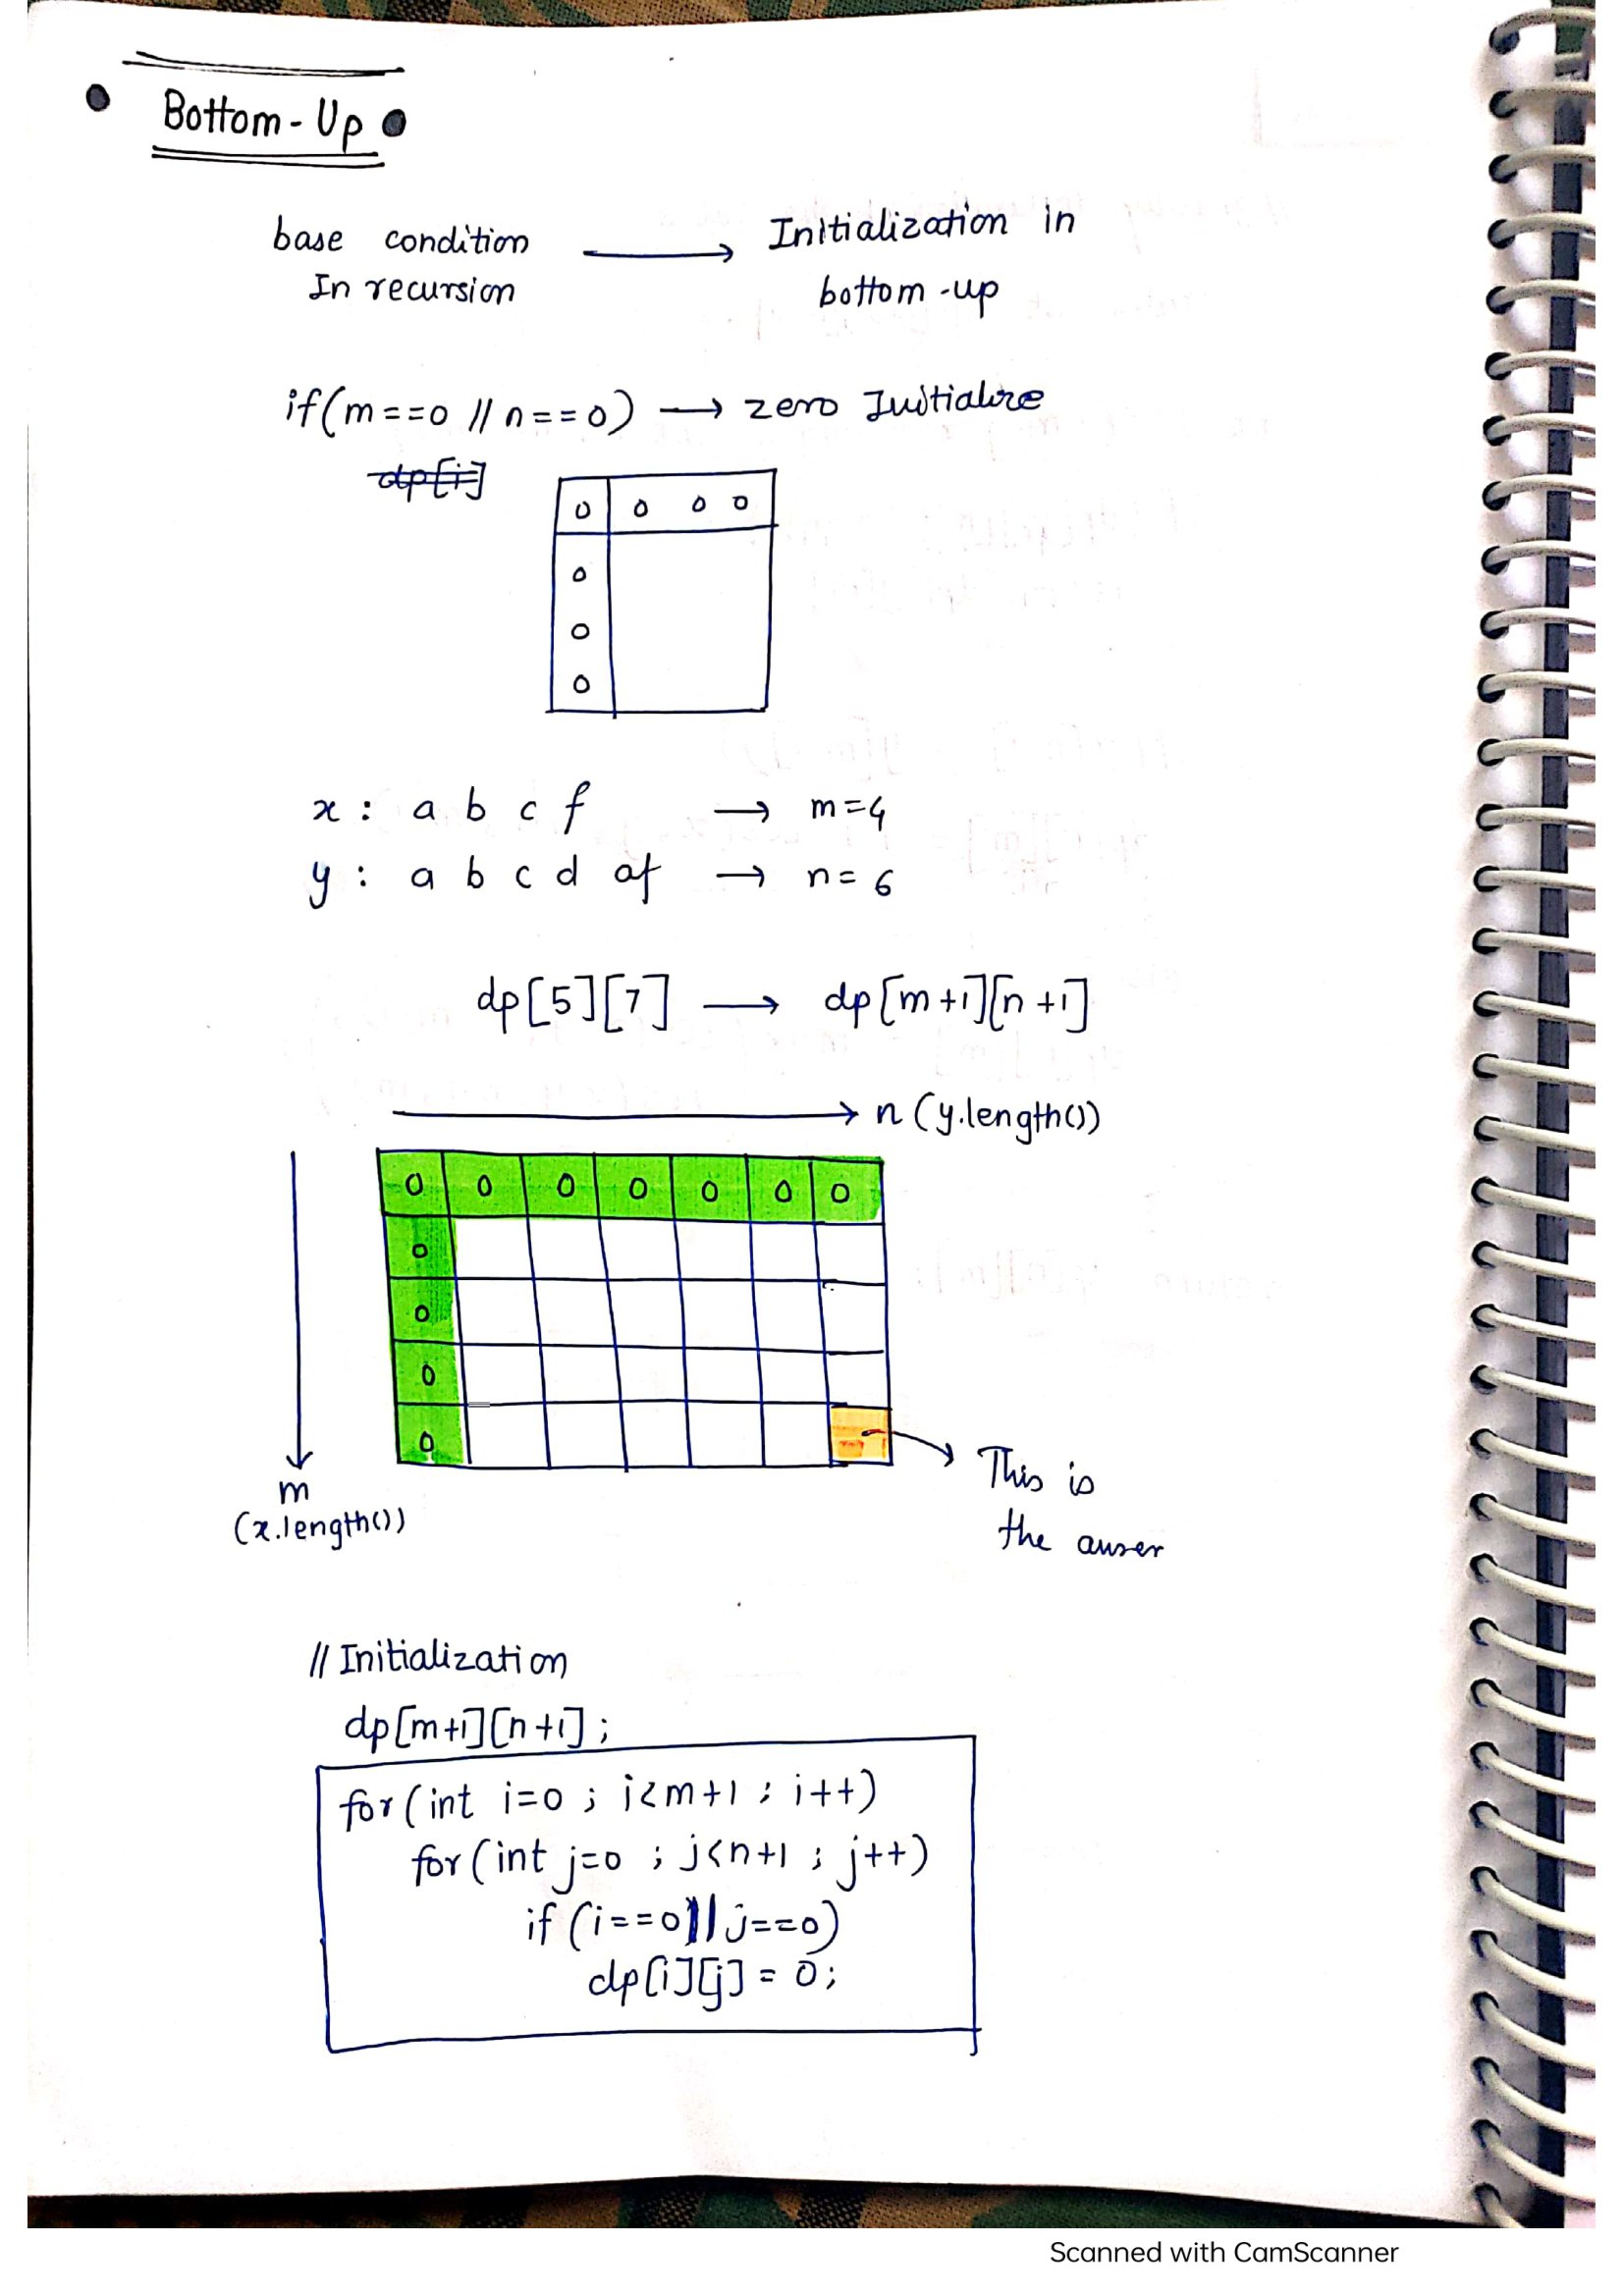 Bottom-Up
base condition → Initialization in
In recursion bottom-up
if(m==0 || n==0) → zero Initialize
dp[i]
0 0 0 0
0
0
0
x : a b c f → m=4
y : a b c d af → n=6
dp[5][7] → dp[m+1][n+1]
n (y.length())
0 0 0 0 0 0 0
0
0
0
0
m
(x.length())
This is
the anser
// Initialization
dp[m+1][n+1];
for(int i=0 ; i<m+1 ; i++)
for(int j=0 ; j<n+1 ; j++)
if (i==0 || j==0)
dp[i][j] = 0;
Scanned with CamScanner